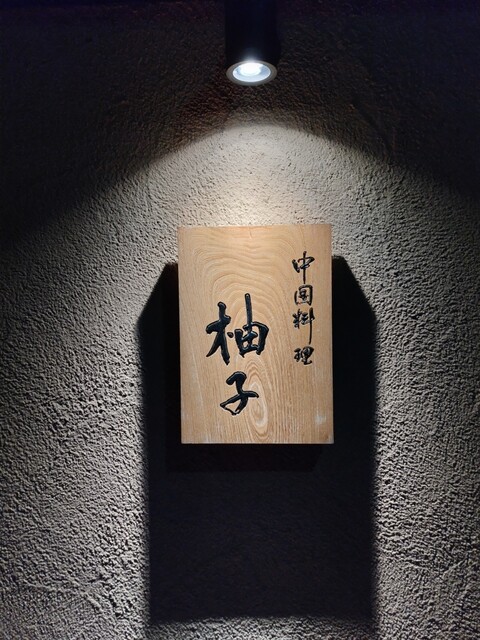 中国料理
柚子